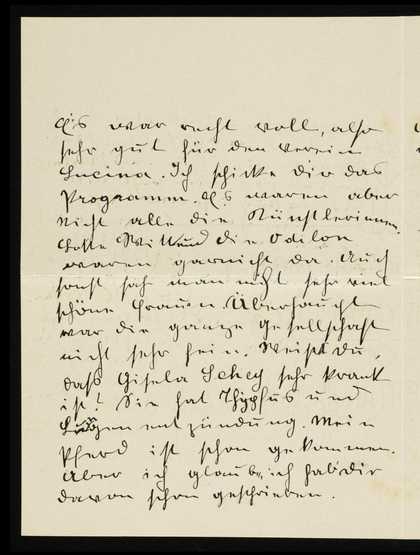 Es war recht voll, also
sehr gut für den Verein
Lucina. Ich schicke dir das
Programm. Es waren aber
nicht alle die Künstlerinnen.
Lotte Witt und die Odilon
waren garnicht da. Auch
sonst sah man nicht sehr viel
schöne Frauen. Überhaupt
war die ganze Gesellschaft
nicht sehr fein. Weißt du,
daß Gisela sehr krank
ist! Sie hat Thyphus und
Lungenentzündung. Mein
Pferd ist schon gekommen.
Aber ich glaube, ich hab dir
davon schon geschrieben.